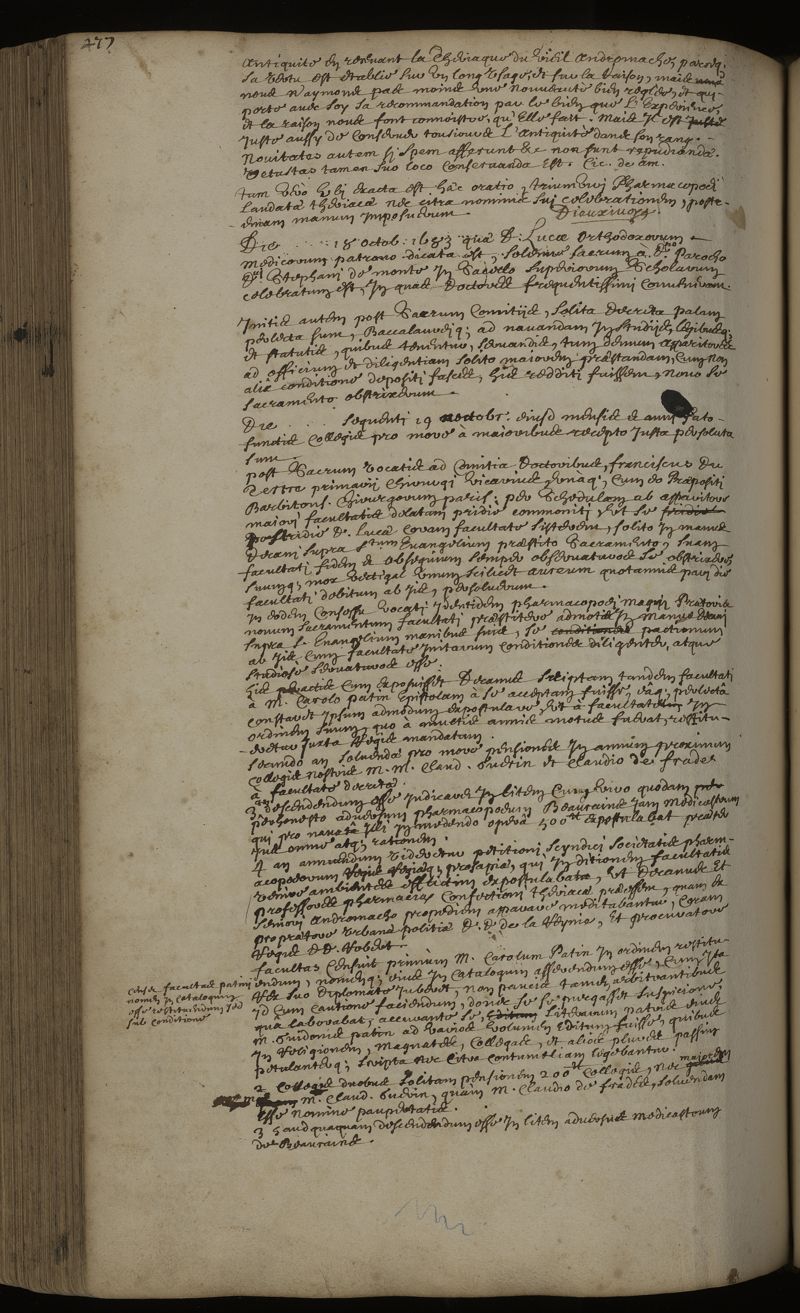 477
antiquité en recevant la Theriaque du vieil andromaches parceq;
sa vertu est etablie sur un long usage, et sur la raison, mais
nous n'aymons pas moins une nouveauté bien reglée, et qui
porte avec soy sa recommandation par le bien que l'Experience,
et la raison nous font connoistre, qu'Elle fait. Mais Il est Juste
Juste aussy de conserver tousiours L'antiquité dans son rang.
Novitates autem si spem afferunt &c non sunt repudiandæ.
Vetustas tamen suo loco conservanda Est. Cic. de am.
tum vero ubi exacta est hæc oratio, triumviri Pharmacopœi
laudatâ theriacâ nec citra nominis sui celebrationem, postre-
-mam manum Imposuerunt.
Die . . . . 18 octob. 1683 quâ D. Lucæ Orthodoxorum
Medicorum patrono dicata est, solenne sacrum a Dno Parocho
Sti Stephani de monte In Sacello superiorum scholarum
celebratum est, In quas Doctores frequentissimi convenerunt.
Initio autem post sacrum Comitijs, solita Decreta palam
perlecta sunt, Baccalaureiq; ad navandam In studijs
et statutis, quibus tenentur, servandis, tum demum apparitores
ad officium et diligentiam solito maiorem præstandam, cum non
aliâ conditione depositi fasces, his redditi fuissent, novo se
sacramento obstrixerunt.
Die . . . sequenti 19 octobr. eiusd mensis et anni fato-
functis collegis pro more à maioribus recepto Justa persoluta
sunt.
post sacrum vocatis ad Comitia Doctoribus, franciscus Du
Tertre primarij Chirurgi vicarius, cum 4or Præpositi
Barbitons. Chirurgorum paris. per schedulam ab apparitore
maiori facultatis delatam pridie commoniti, ut se
postridie D. Lucæ coram facultate sisterent, solito In manus
Decani supra Stum Evangelium præstito sacramento, suam
facultati fidem et obsequium semper observaturos se obstrixere
suumq; mox vectigal unum scilicet aureum quotannis pari die
facultati debitum ab Ijs, persolverunt.
In eodem Consessu vocati Itidem pharmacopœi
novum sacramentum facultati præstitere admotis In manus Decani
supra S. Evangelium manibus suis, se conditiones pactionum
ab Ijs cum facultate Initarum conditiones diligenter, atque
studiosè servaturos esse.
His peractis cum exposuisset Decanus scriptam tandem facultati
à M. Carolo patin Epistolam à se acceptam fuisse, eâq; perlectâ
constaret Ipsum admodum expostulare, ut à facultate In
ordinem suum, quo à multis annis motus fuerat, restitu-
-eretur Juxta Regis mandatum.
secundo an solvenda pro more pensiones In annum proximum
Collegis nostris M. M. Claud. Guerin et Claudio de frades
à facultate decreta.
3 an descendendum esse Judicaret In litem cum viro quodam
perhonesto adversum pharmacopœum Beaucaine Jam Medicastrum
qui pro navatâ Illi In medendo operâ 500tt expostulabat præter
Jus omne atq; rationem.
4 an annuendum videretur petitioni syndici societatis pharm-
acopœorum professoris, qui In ditionem facultatis
venire ambientes efflictim expostulabant, ut Decanus et
Professores pharmaciæ confectioni theriacæ præessent, quam ex
senioris andromacho propediem apparare meditabantur, Coram
proprætore urbanæ politiæ D. D. de la Reynie, et procuratore
Regis D. D. Robert.
facultas censuit primùm M. Carolum Patin In ordinem restitu-
endum, nomenq; eius In catalogum asserendum esse, cum Ita
Rex suo Diplomate Juberet, non paucis tamen arbitrantibus
Id cum cautione faciendum, donec se se purgasset suspicione,
quâ laborabat, accusante se, editum litterarum patris eius
M. Guidonis patin ad varios volumen Editum fuisse, quibus
In Religionem, Magnates, Collegas, et alios plures passim
petulanterq; scripta nec citra contumeliam legebantur.
2 Collegis duobus solitam pensionem 200tt Collegis, nec maiorem
M. Claud. Guerin, quam M. Claudio de frades, solvendam
Esse nomine paupertatis.
3 haudquaquam descendendum esse In litem adversus Medicastrum
de Beaucaine.
Censet facultas patini
nomen In catalogum
esse restituendum sed
sub conditione